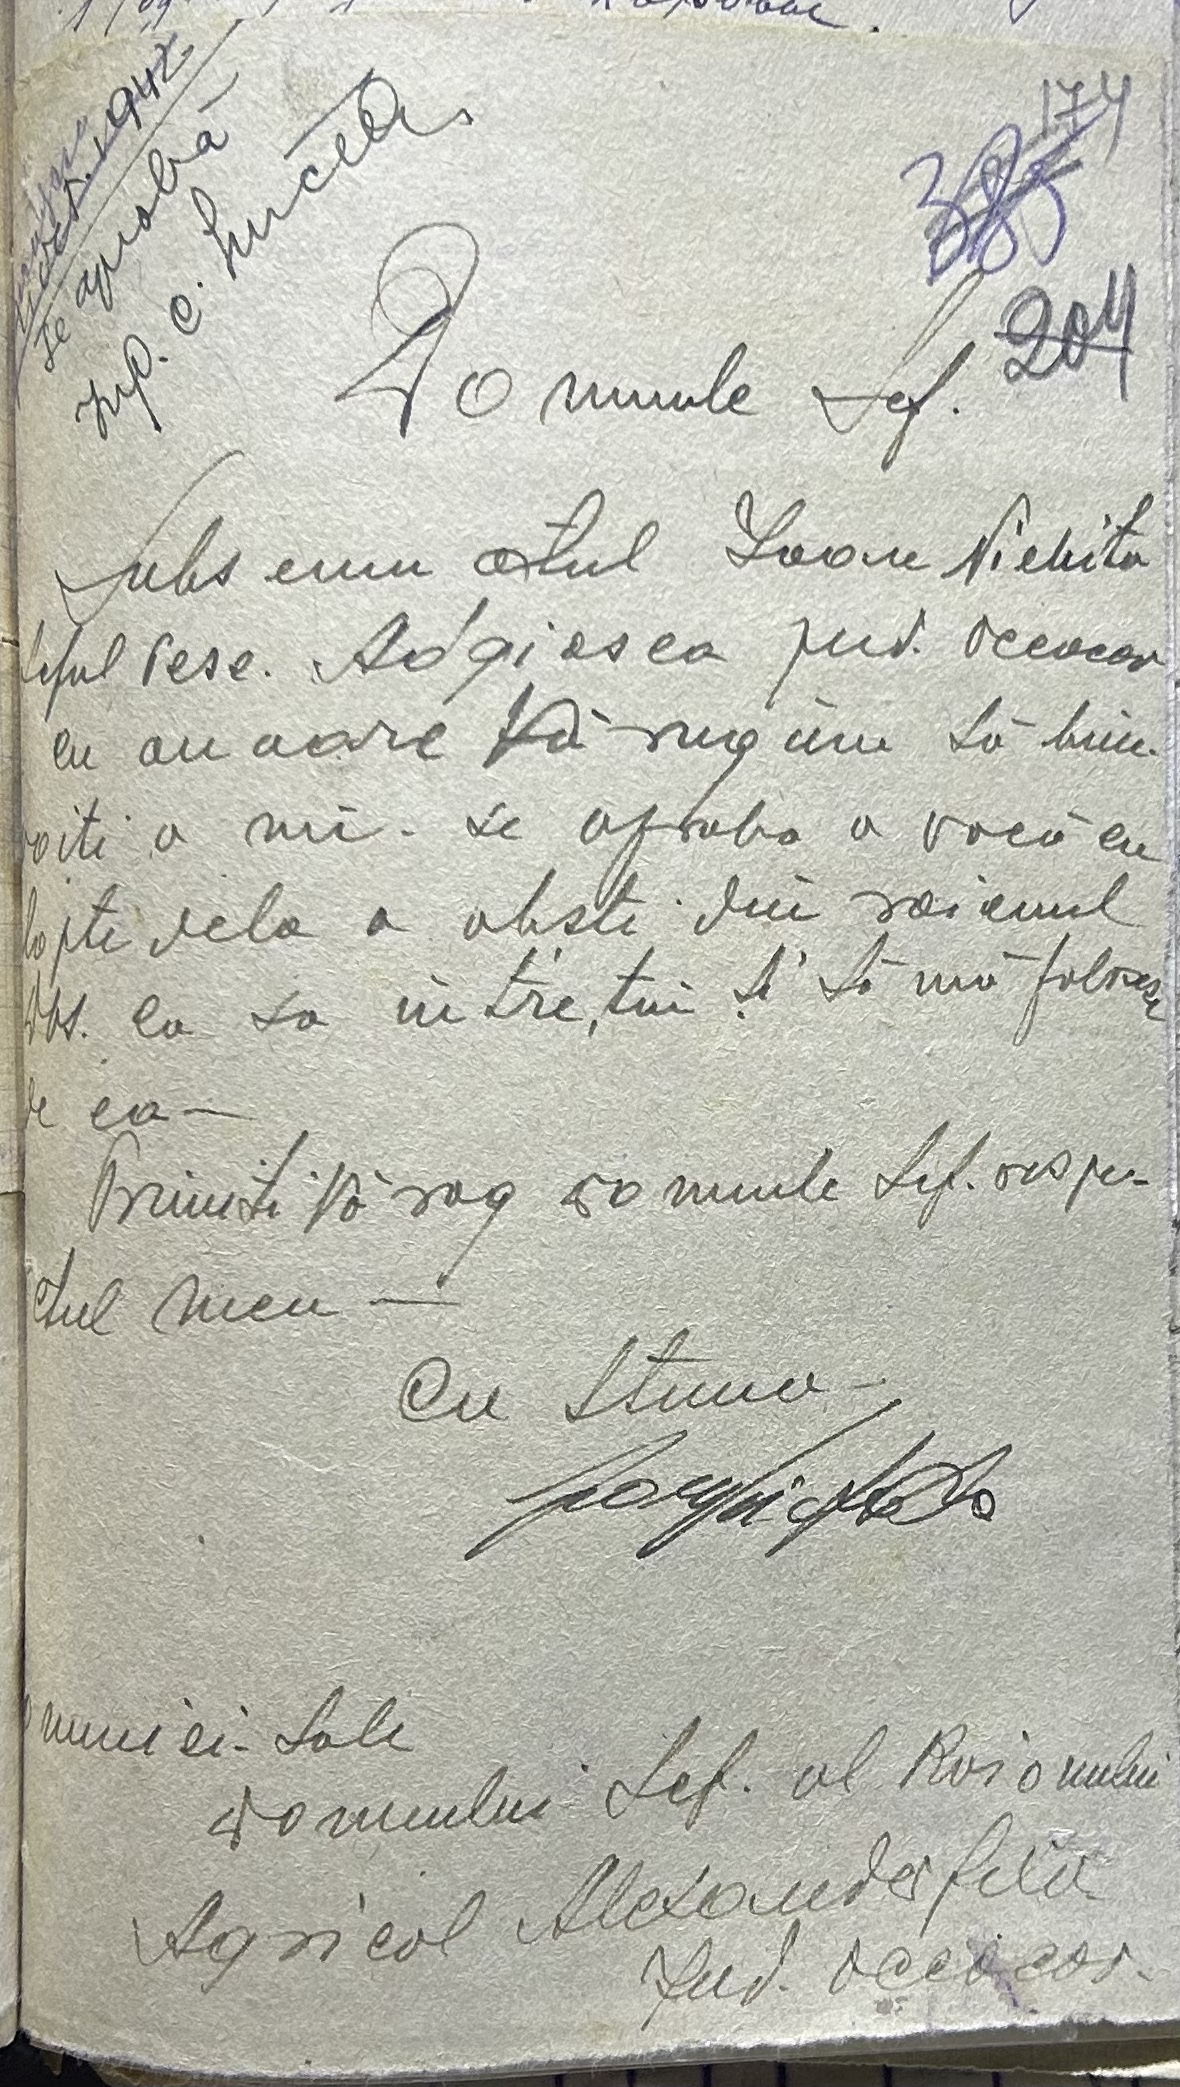 oct. 1942
se aprobă
174
385
204
Domnule Sef.
Subsemnatul Ioan Nichita
Seful Sesc. Adgiasca jud. Oceacov
cu onoare Vă rugăm să bine-
voiti a mi. se aproba o vacă cu
lapte dela o obste din raionul
ca sa întreţin si să mă folosesc
de ea —
Primiti Vă rog domnule Sef. respe-
ctul meu —
Cu Stima —
omniei-Sale
Domnului Sef. al Raionului
Agricol Alexanderfeld
Jud. Oceacov.